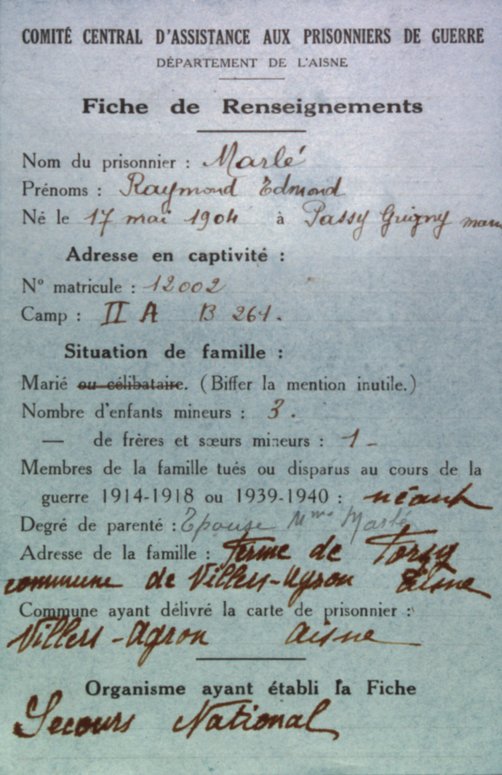 COMITÉ CENTRAL D'ASSISTANCE AUX PRISONNIERS DE GUERRE
DÉPARTEMENT DE L'AISNE
Fiche de Renseignements
Nom du prisonnier : Marlé
Prénoms : Raymond Edmond
Né le 17 mai 1904 à Passy Grigny
Adresse en captivité :
N° matricule : 12002
Camp : II A B 261.
Situation de famille :
Marié ou célibataire. (Biffer la mention inutile.)
Nombre d'enfants mineurs : 3.
— de frères et sœurs mineurs : 1 –
Membres de la famille tués ou disparus au cours de la
guerre 1914-1918 ou 1939-1940 : néant
Degré de parenté : Epouse Mme Marlé
Adresse de la famille : Ferme de Torsy
commune de Villers-Agron Aisne
Commune ayant délivré la carte de prisonnier :
Villers-Agron Aisne
Organisme ayant établi la Fiche
Secours National